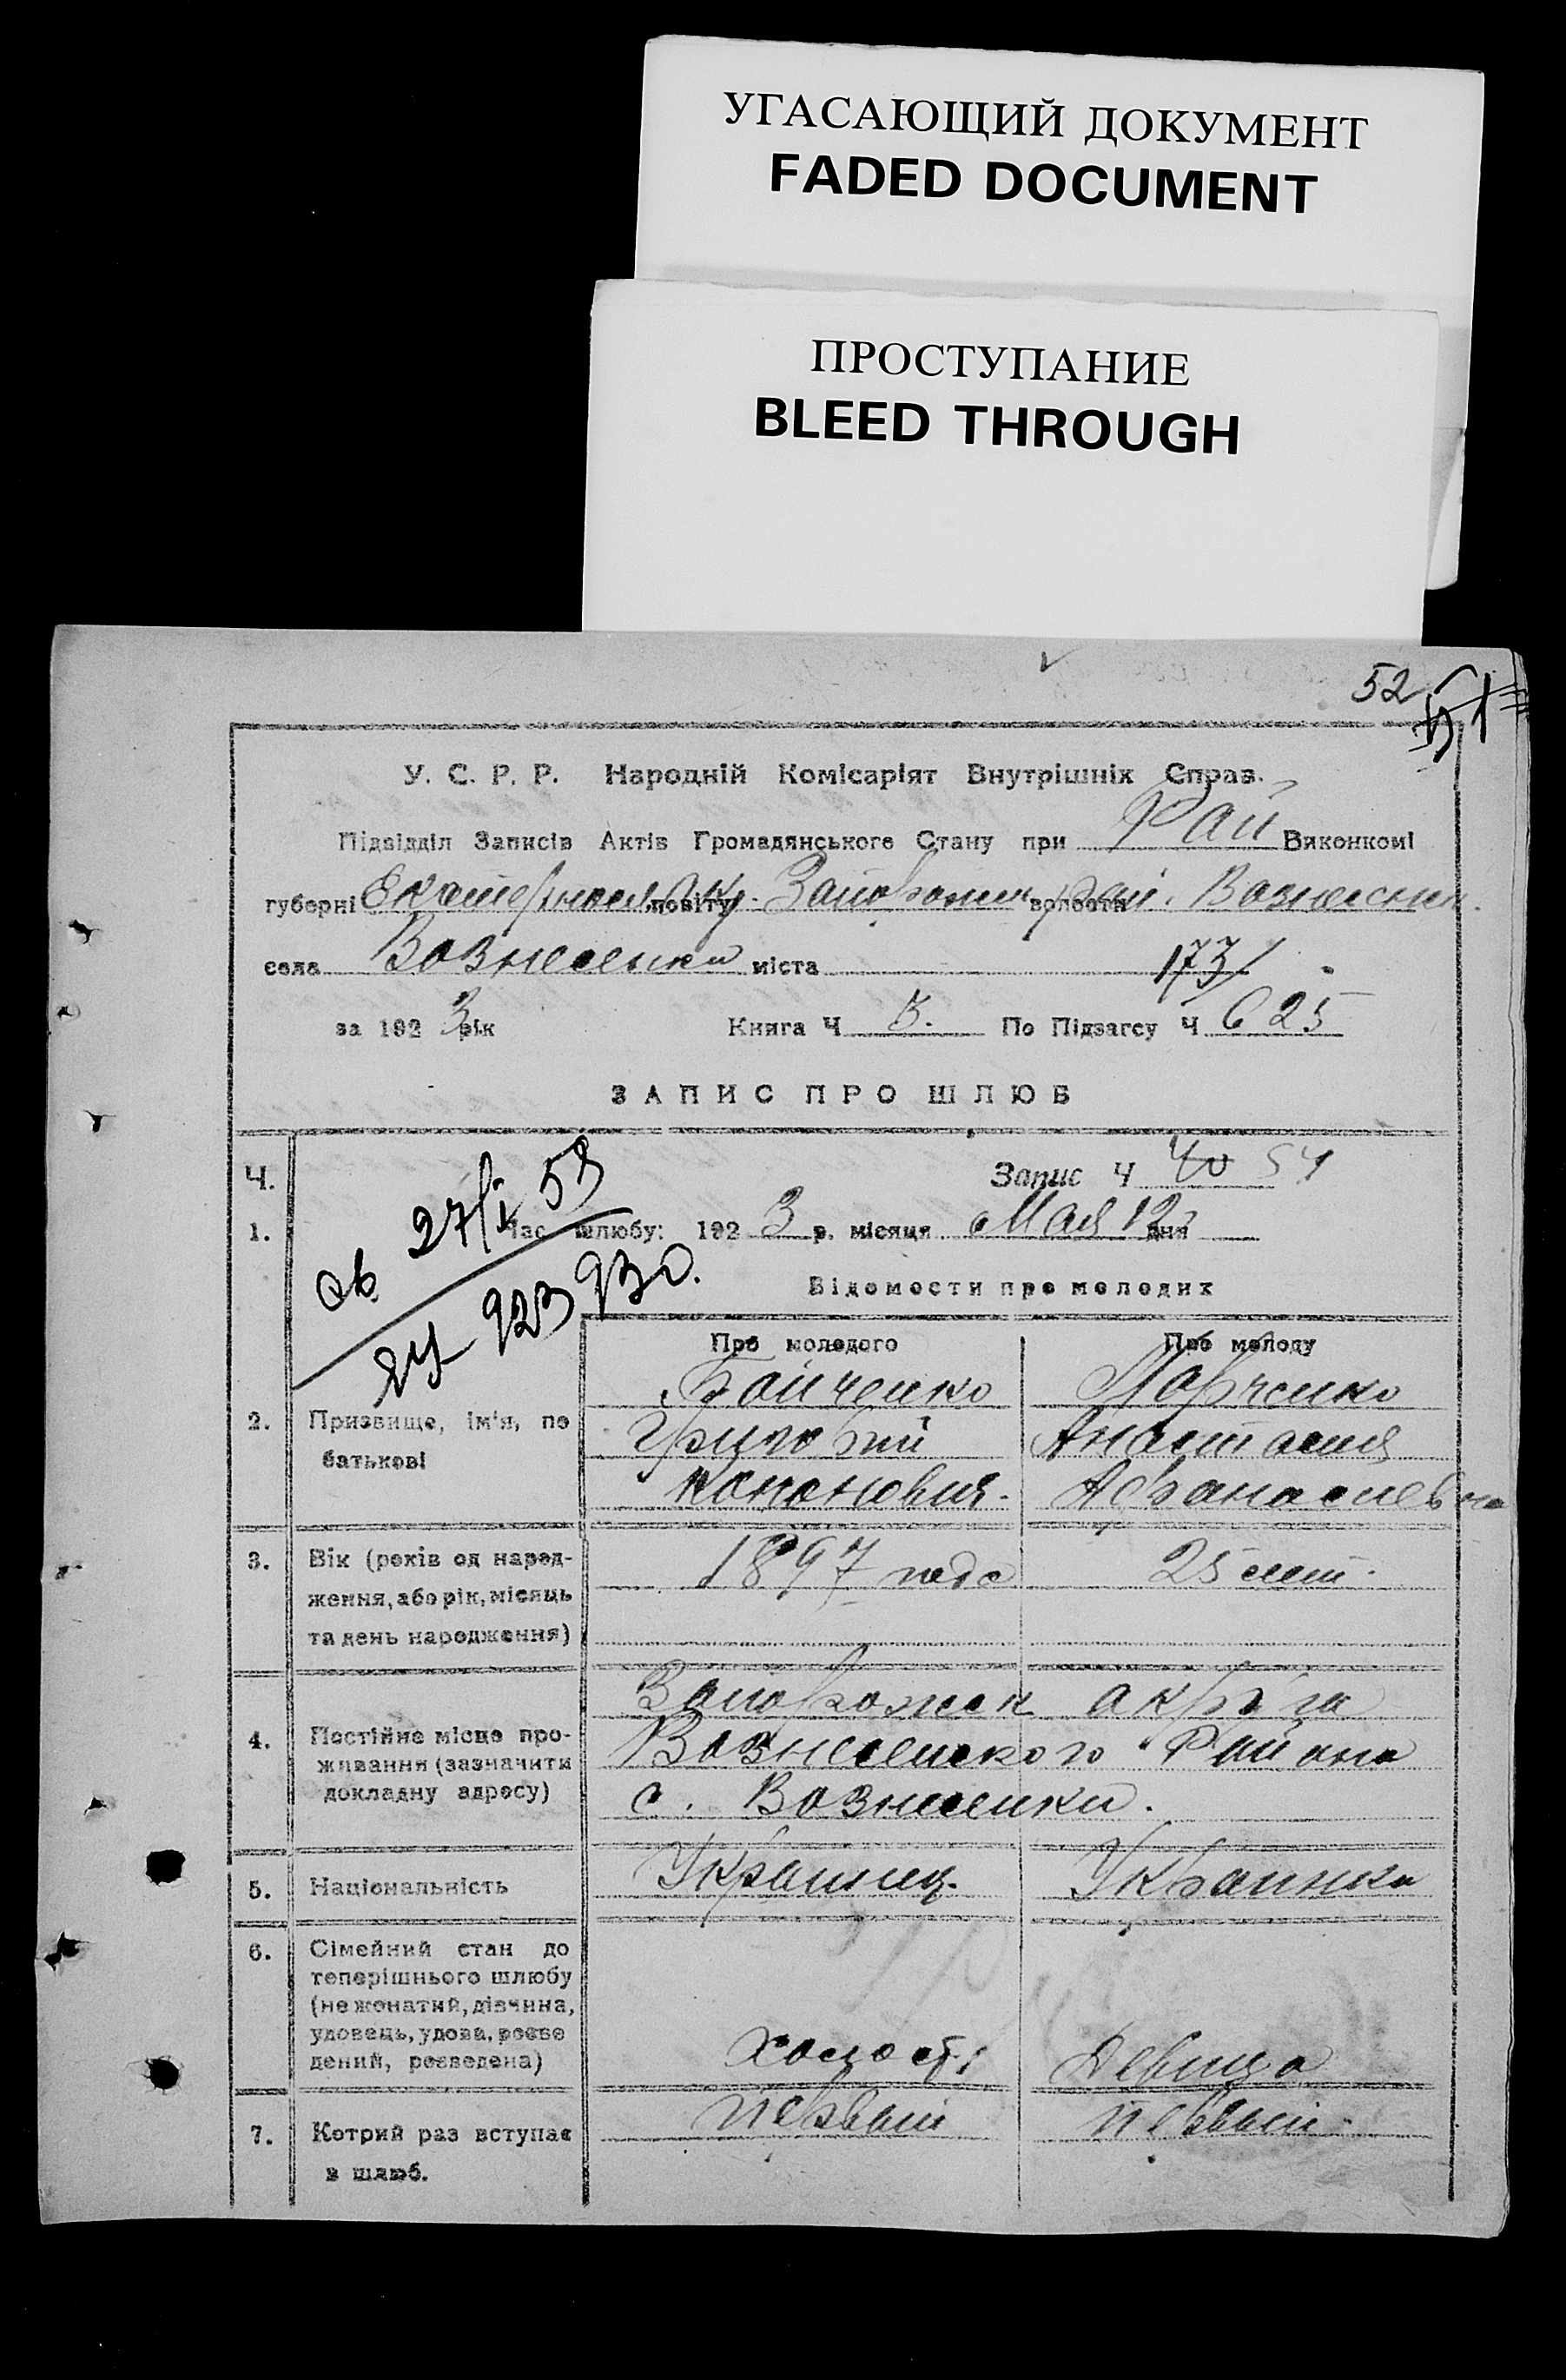 УГАСАЮЩИЙ ДОКУМЕНТ
FADED DOCUMENT
ПРОСТУПАНИЕ
BLEED THROUGH
52
51
У. С. Р. Р. Народній Комісаріят Внутрішніх Справ.
Підвідділ Записів Актів Громадянського Стану при Рай Виконкомі
губерні повіту волости
села Вознесенки міста 173
за 1923 рік Книга Ч По Підзагсу Ч 625
ЗАПИС ПРО ШЛЮБ
Ч. Запис Ч 40 54
1. Час шлюбу: 1923 р. місяця Мая 12 дня
Відомости про молодих
Про молодого Про молоду
Бойченко Марченко
2. Призвище, ім'я, по батькові
Григорий Анастасия
Кононович. Афанасиевна
3. Вік (років од народ-
ження, або рік, місяць
та день народження)
1897 года 25 лет.
Запорожск округа
4. Постійне місце про-
живання (зазначити
докладну адресу)
Вознесенского Района
с. Вознесенки.
5. Національність Украинец. Украинка
6. Сімейний стан до
теперішнього шлюбу
(не жонатий, дівчина,
удовець, удова, розве
дений, розведена)
холост Девица
7. Котрий раз вступає
в шлюб.
первый первый.